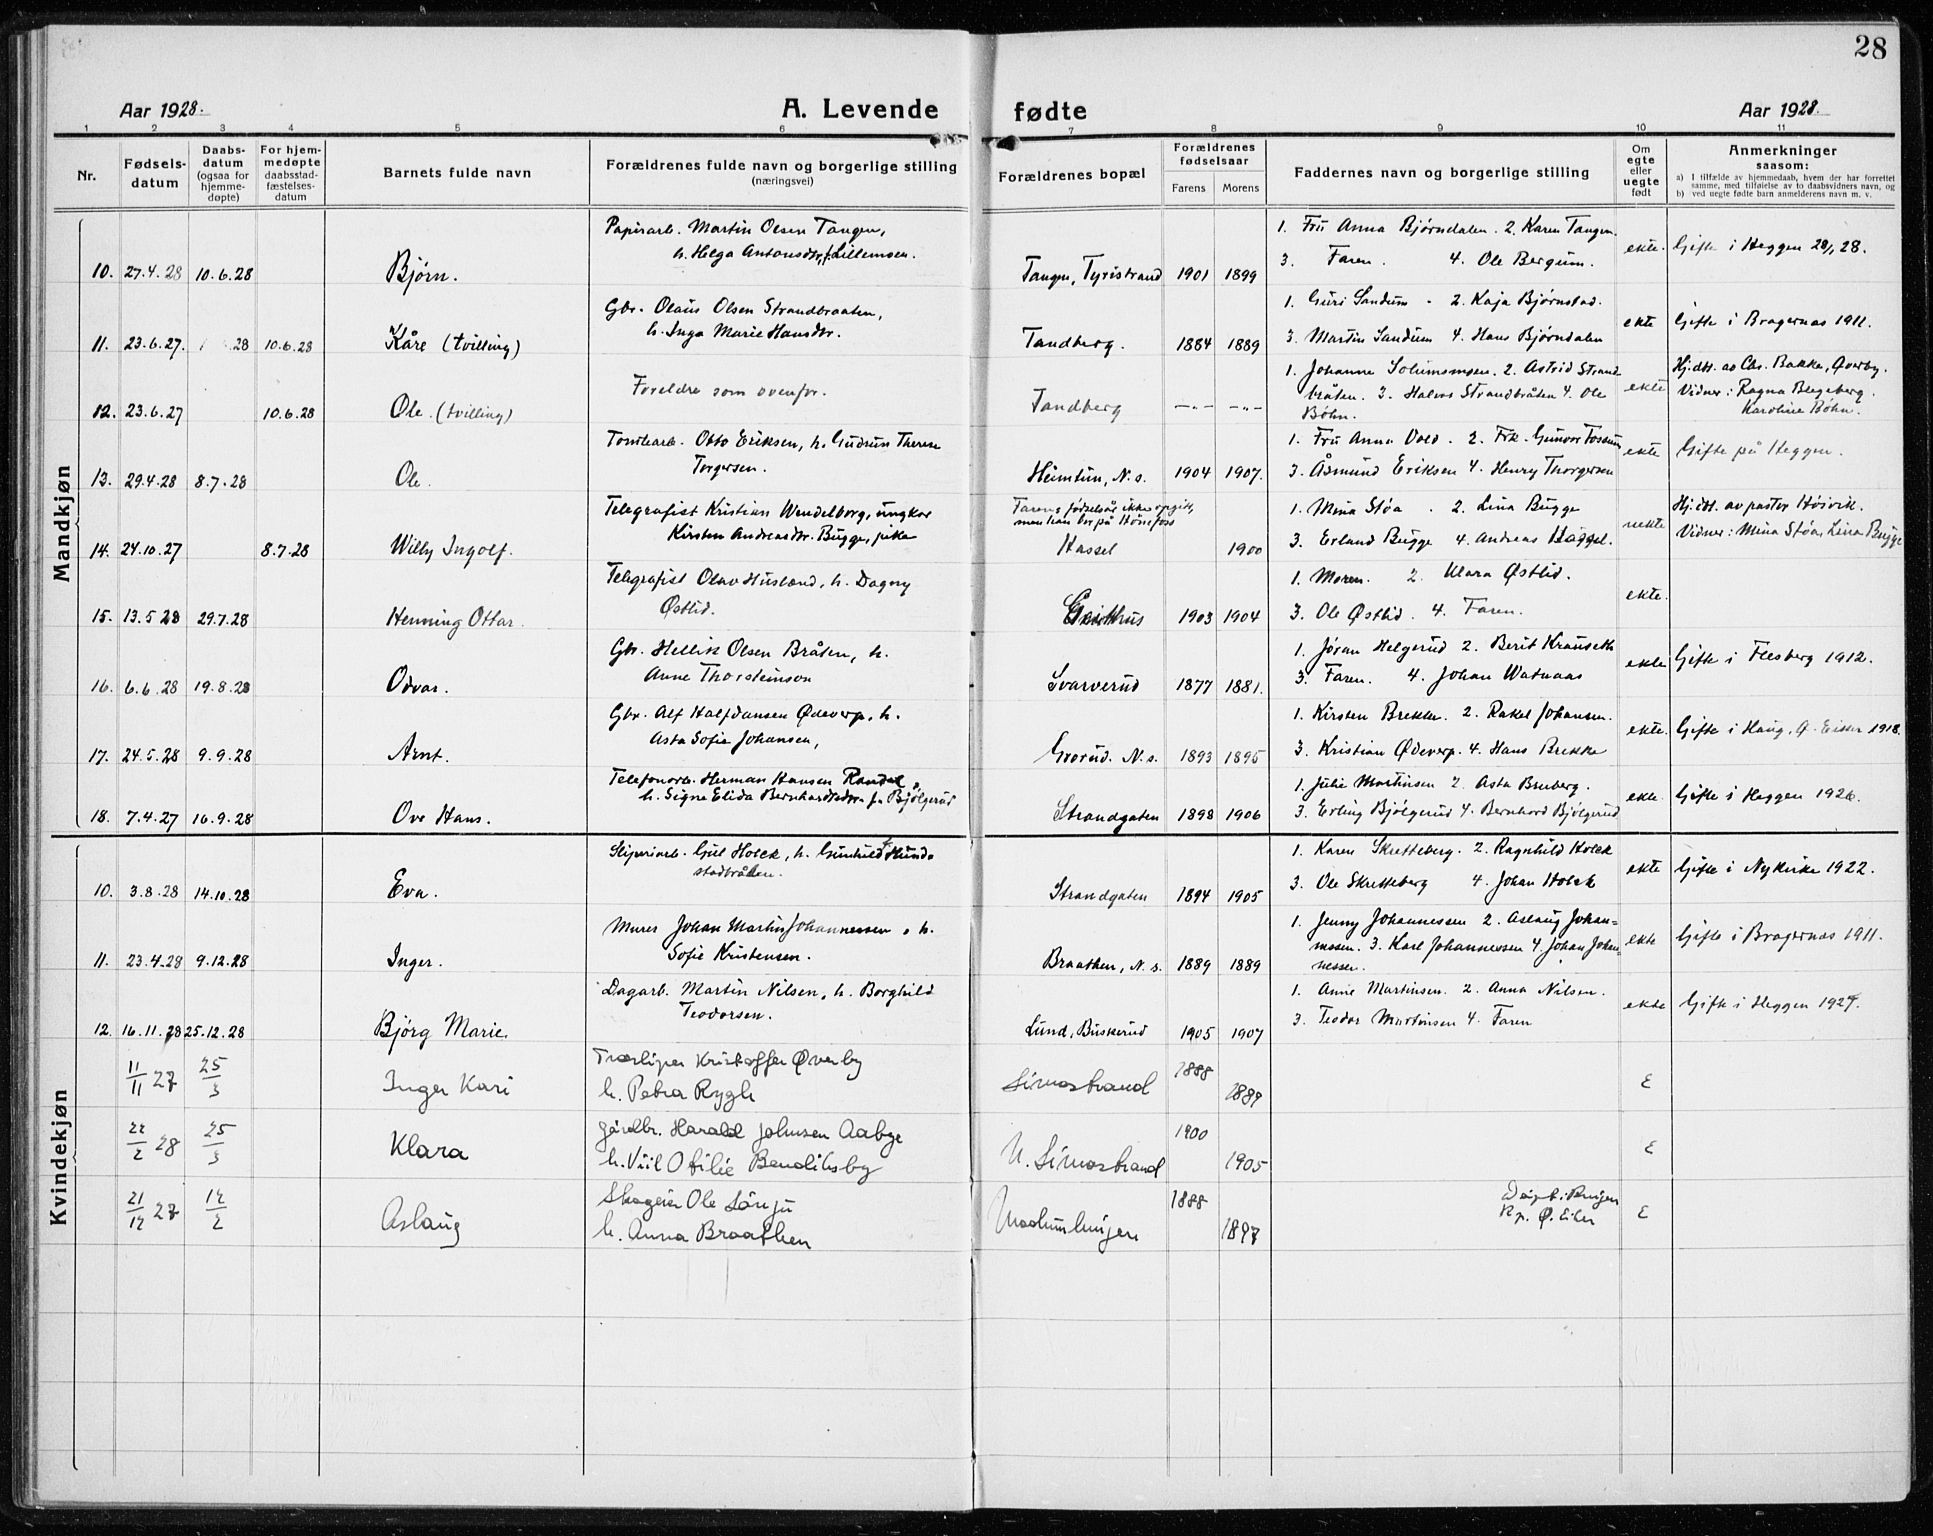 28
Aar 1928.
A. Levende
fødte
Aar 1928.
1 2 3 4 5 6 7 8 9 10 11
Nr.
Fødsels-
datum
Daabs-
datum
(ogsaa for
hjemme-
døpte)
For hjem-
medøpte
daabsstad-
fæstelses-
datum
Barnets fulde navn
Forældrenes fulde navn og borgerlige stilling
(næringsvei)
Forældrenes bopæl
Forældrenes
fødselsaar
Farens Morens
Faddernes navn og borgerlige stilling
Om
egte
eller
uegte
født
Anmerkninger
saasom:
a) I tilfælde av hjemmedaab, hvem der har forrettet
samme, med tilføielse av to daabsvidners navn, og
b) ved uegte fødte barn anmelderens navn m. v.
Mandkjøn
Papirarb. Martin Olsen Tangen,
h. Helga Antonsdtr. f. Lillemoen.
10. 27.4.28 10.6.28 Bjørn. Tangen, Tyristrand 1901 1899
1. Fru Anna Bjørndalen. 2. Karen Tangen.
3. Faren. 4. Ole Bergum.
ekte. Gifte i Heggen 28.
Gbr. Olaus Olsen Strandbraaten,
h. Inga Marie Hansdtr.
11. 23.6.27. 28 10.6.28 Kåre (tvilling) Tandberg. 1884 1889
1. Guri Sandum. 2. Kaja Bjørnstad.
3. Martin Sandum 4. Hans Bjørndalen
ekte Gifte i Bragernas 1911.
Foreldre som ovenfor.
12. 23.6.27 10.6.28 Ole. (tvilling) Tandberg —„— —„—
1. Johanne 2. Astrid Strand
bråten. 3. Halvor Strandbråten 4. Ole
Bøhn.
ekte Hj.dt. av Chr. Bakke, Øverby.
Vidner: Ragna Blegeberg.
Karoline Bøhn.
Tomtearb. Otto Eriksen, h. Gudrun Therese
Torgersen.
13. 29.4.28 8.7.28 Ole. Heimtun, N.s. 1904 1907.
1. Fru Anna Vold. 2. Frk. Gunvor Fossum
3. Åsmund Eriksen 4. Henry Thorgersen
ekte Gifte på Heggen.
Telegrafist Kristian Wendelborg, ungkar
Kirsten Andreasdtr. Bugge, pike
14. 24.10.27 8.7.28 Willy Ingolf.
Farens fødselsår ikke opgitt,
men han bor på Hønefoss
Hassel 1900
1. Mina Støa. 2. Lina Bugge
3. Erland Bugge 4. Andreas Hassel.
uekte Hj.dt. av pastor Høivik.
Vidner: Mina Støa, Lina Bugge
Telegrafist Olav Husland, h. Dagny
Østlid.
15. 13.5 28 29.7.28 Henning Ottar. 1903 1904
1. Moren. 2. Klara Østlid.
3. Ole Østlid. 4. Faren.
ekte.
Gbr. Hellik Olsen Bråten, h.
Anne Thorsteinson
16. 6.6.28 19.8.28 Odvar. Svarverud 1877 1881.
1. Jøran Helgerud 2. Berit Krauseth
3. Faren. 4. Johan Watnaas
ekte Gifte i Flesberg 1912.
Gbr. Alf Halfdansen Ødeverp. h.
Asta Sofie Johansen,
17. 24.5.28 9.9.28 Arnt. Gvorud. N.s. 1893 1895
1. Kirsten Brekke. 2. Rakel Johansen.
3. Kristian Ødeverp. 4. Hans Brekke
ekte. Gifte i Haug, Ø. Eiker 1918.
Telefonarb. Herman Hansen Randel,
h. Signe Elida Bernhardsdtr. f. Bjølgerud
18. 7.4.27 16.9.28 Ove Hans. Strandgaten 1898 1906
1. Julie Martinsen 2. Asta Bruberg.
3. Erling Bjølgerud 4. Bernhard Bjølgerud
ekte. Gifte i Heggen 1926.
Kvindekjøn
Sliperiarb. Gul Holck, h. Gunhild Hund-
stadbråten.
10. 3.8.28 14.10.28 Eva. Strandgaten 1894 1905
1. Karen Skretteberg. 2. Ragnhild Holck
3. Ole Skretteberg 4. Johan Holck
ekte Gifte i Nykirke 1922.
Murer Johan Martin Johannessen, h.
Sofie Kristensen.
11. 23.4.28 9.12.28 Inger. Braathen, N.s. 1889 1889
1. Jenny Johannessen 2. Aslaug Johan=
nessen. 3. Karl Johannessen 4. Johan Johan-
nessen.
ekte Gifte i Bragernas 1911.
Dagarb. Martin Nilsen, h. Borghild
Teodorsen.
12. 16.11.28 25.12.28 Bjørg Marie. Lund, Buskerud 1905 1907
1. Anne Martinsen. 2. Anna Nilsen.
3. Teodor Martinsen 4. Faren
ekte Gifte i Heggen 1927.
Træsliper Kristoffer Øverby
h. Petra Rygh
11/11 27 25/3 Inger Kari Simostrand 1888 1889 E
gårdbr. Harald Johnsen Aabye
h. Otilie Bendiksby
22/2 28 25/3 Klara N. Simostrand 1900 1905 E
Skogeier Ole Sønju
h. Anna Braathen
21/12 27 12/2 Aslaug 1888 1897
Døpt i Bingen
Kp. Ø. Eiker
E